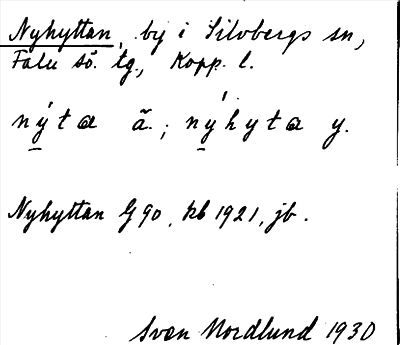 Nyhyttan, by i Silvbergs sn,
Falu sö. tg., Kopp. l.
nýta ã.; nýhyta y.
Nyhyttan G 90, kb 1921, jb.
Sven Nordlund 1930